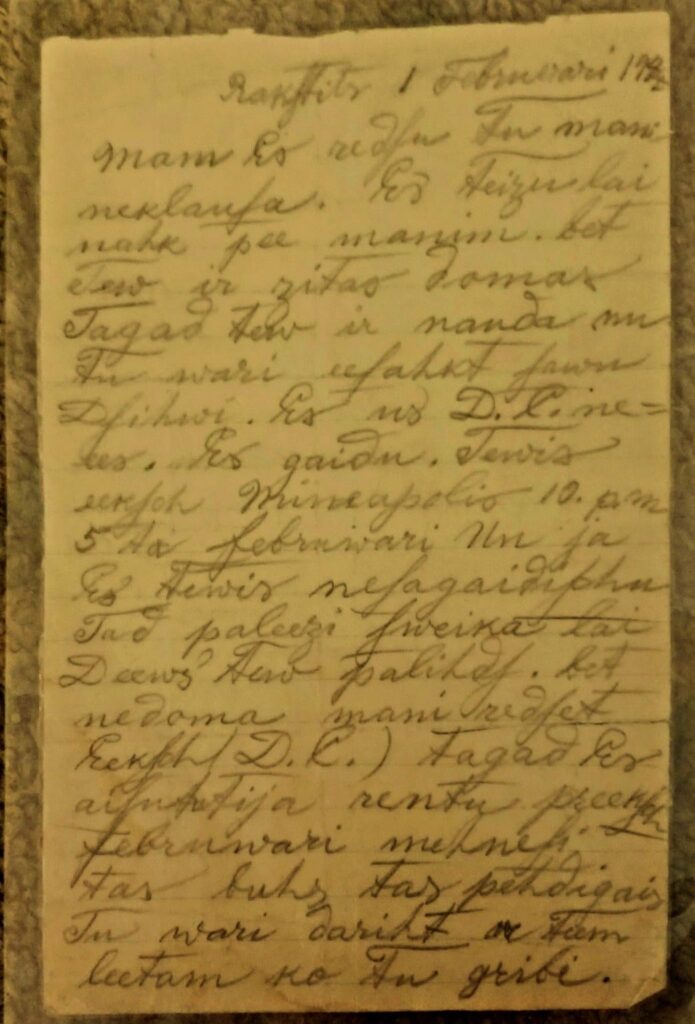 Rakstits 1 Februwari
Mam Es redsu Tu mani
neklausa. Es teizu lai
nahk pee manim. bet
Tew ir zitas domas
Tagad tew ir nauda nu
Tu wari eesahkt jawu
Dsihwi. Es us D.C. ne=
ees. Es gaidu. Tewis
eeksch Mineapolis 10. p.m
5 ta februwari Un ja
Es tewis nesagaidischu
Tad paleezi sweika lai
Deews tew palihds. bet
nedoma mani redset
Eeksch (D.C.) tagad Es
aisutija rentu preeksch
februwari mehnesi
tas buhs tas pehdigais
Tu wari dariht ar tam
leetam ko Tu gribi.